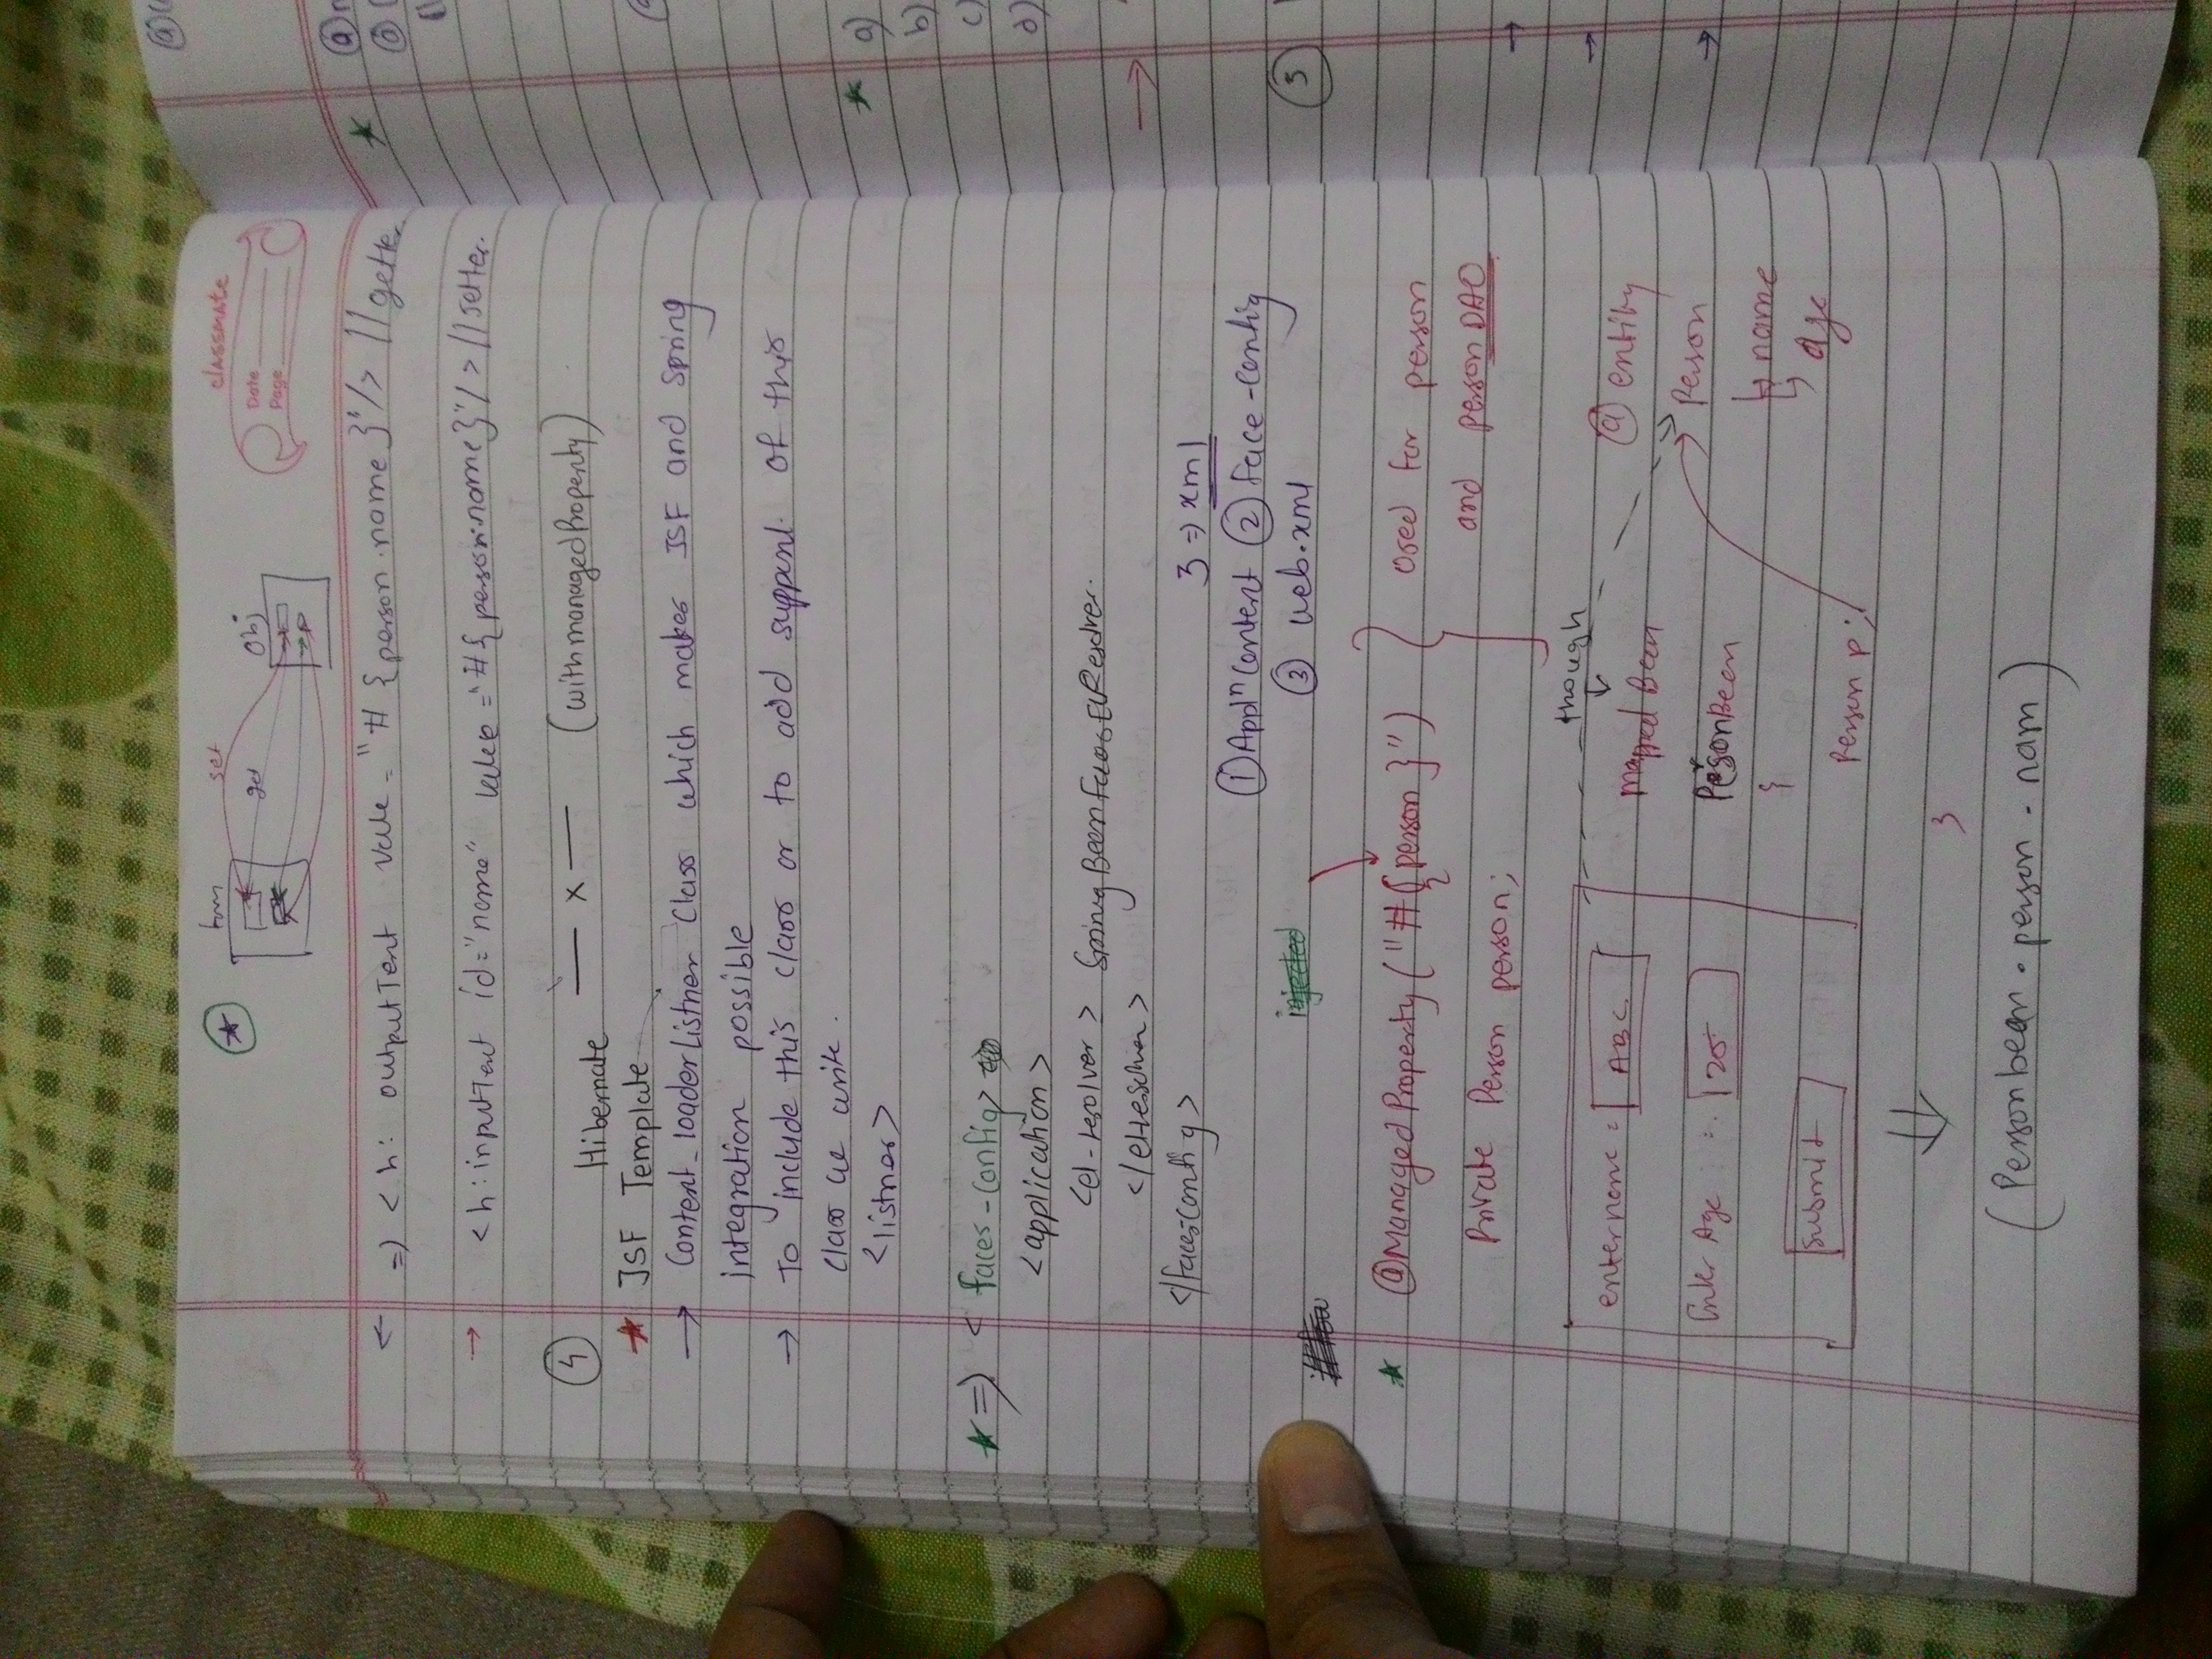 form
set
get
Obj
classmate
Date
Page
=) <h: outputText value = "#{person.name}"/> // getter
<h:inputText id="name" value="#{person.name}"/> // setter.
4
Hibernate — x — (with managed Property)
JSF Template
Content-loaderListner Class which makes JSF and Spring
integration possible
To include this class or to add support of this
class we write.
<listner>
=) < faces-config>
<application>
<el-resolver> SpringBeanFacesELResolver.
</elresolver>
</faces-config>
3 => xml
① Applⁿ Content ② face-config
③ web.xml
injected
@ManagedProperty("#{person}")
Used for person
and personDAO
Private Person person;
though
enter name : ABC
Mapped Bean
@ entity
Enter Age : 25
PersonBean
{
Person
name
age
submit
Person p;
}
(Personbean.person.nam)
@
a)
b)
c)
d)
5